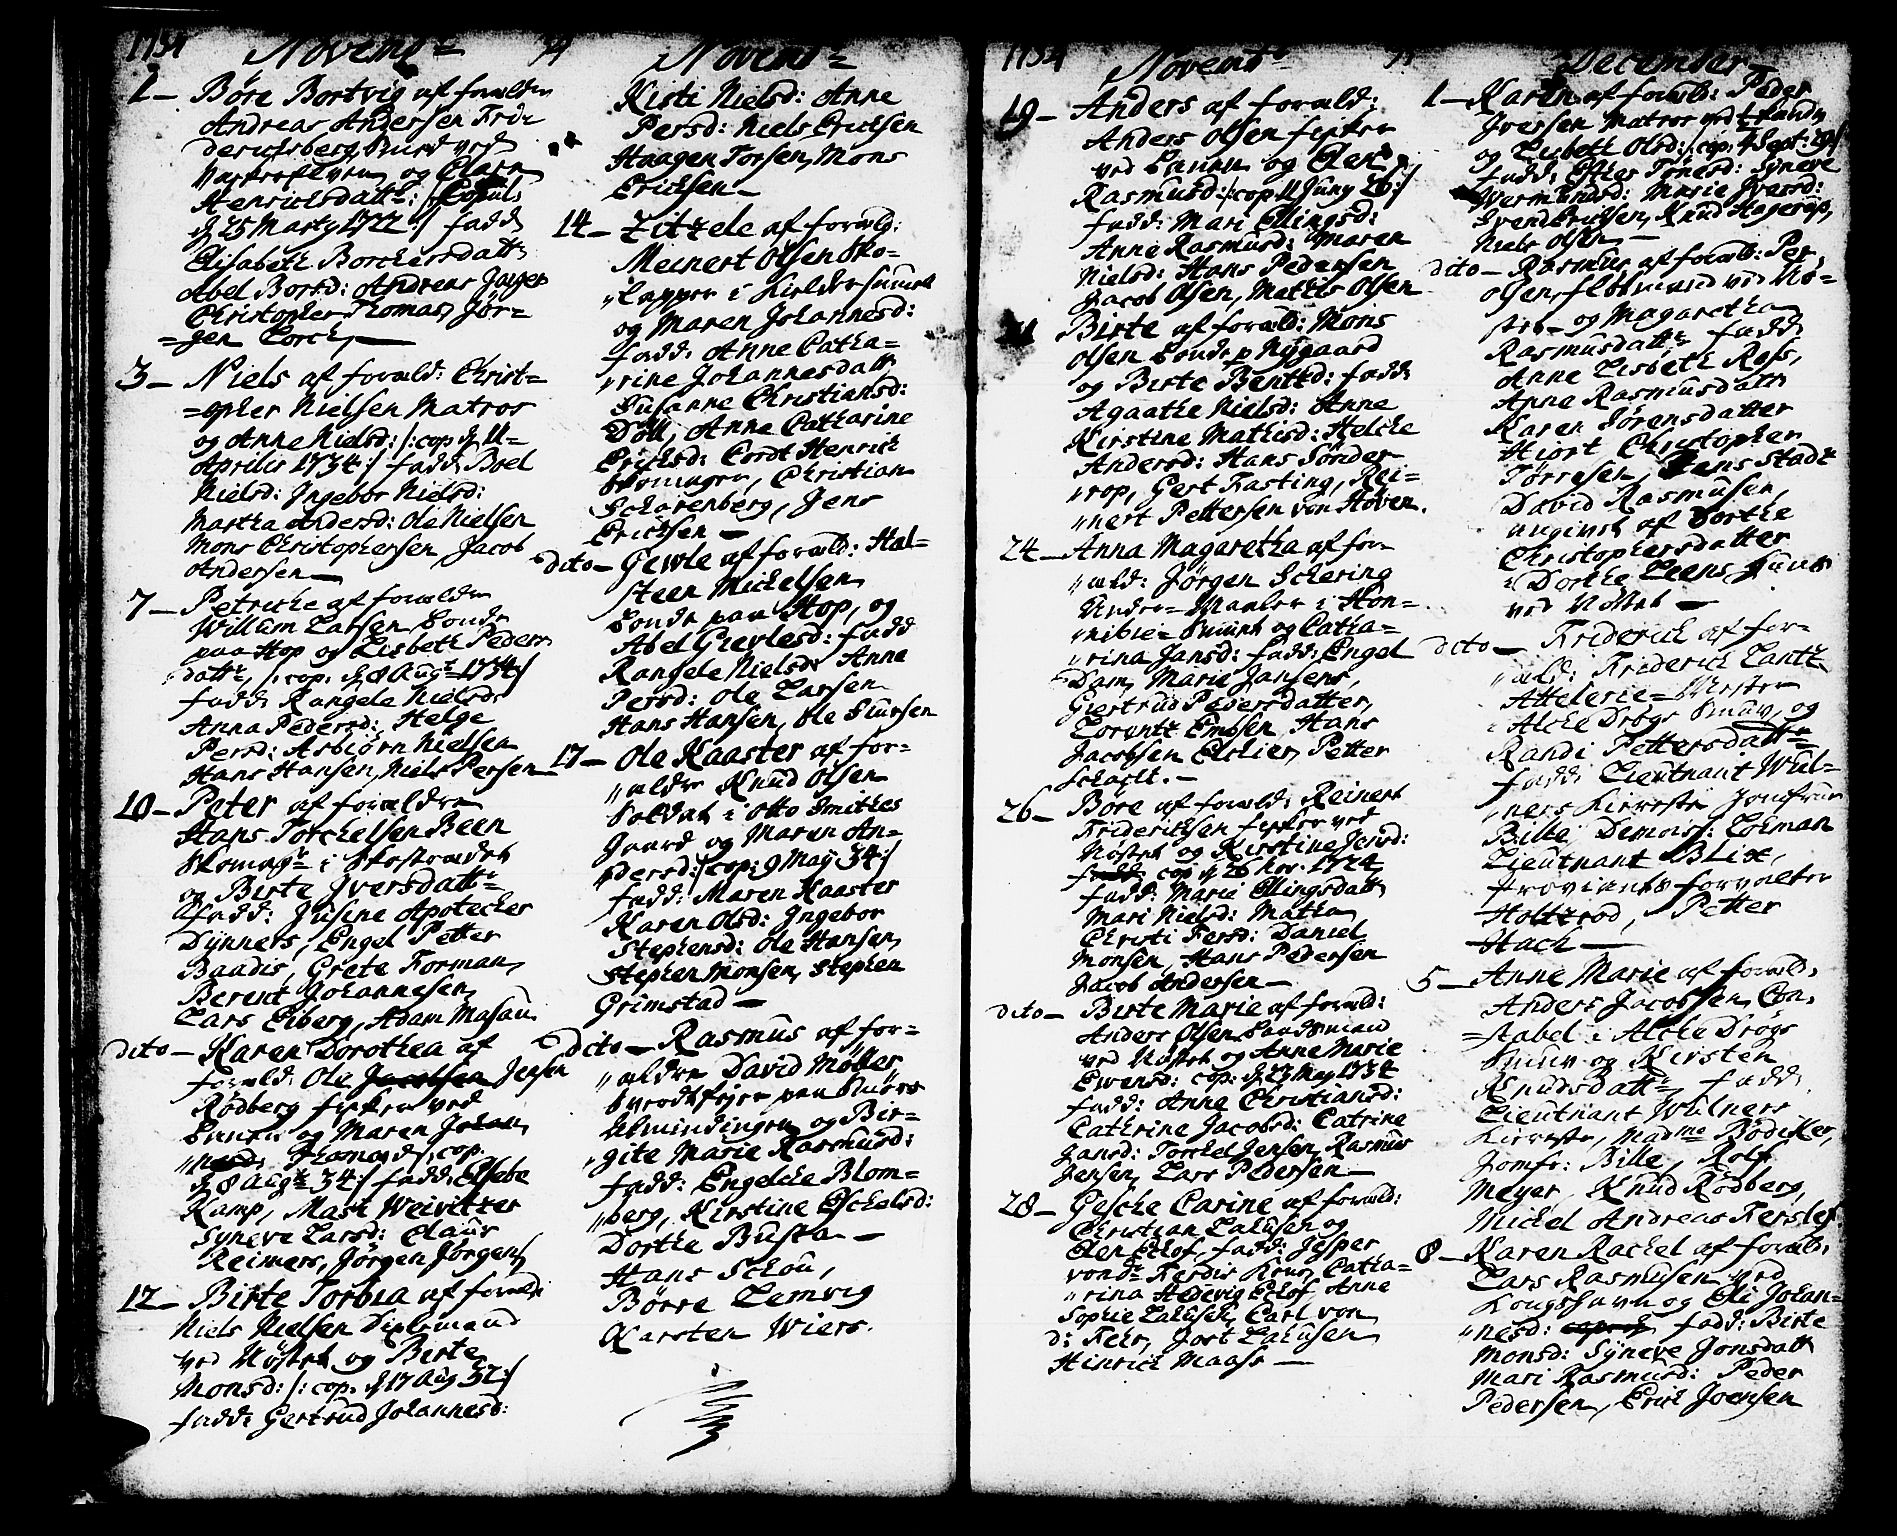 1734 Novembr
2 – Böre Bortvig af forældre
Andreas Andersen Fride
derichsberg
og Claren
Henrichsdattr: /: Copul:
d 25 Marty 1722 :/ fadd:
Elisabeth Borchersdattr
Abel Borsd: Andreas Jæger
Christopher Thomas, Jör-
=gen Lorch, –
3 – Niels af foræld: Christ=
=opher Nielsen Matros
og Anne Nielsd: /: cop d 11 –
Aprilis 1734 :/ fadd: Boel
Nielsd: Jngebor Nielsd:
Martha Andersd: Ole Nielsen
Mons Christophersen, Jacob
Andersen –
7 – Petriche af forældre
Willum Larsen Bonde
paa Hop og Lisbeth Peders
dattr, /: cop. d 8 Augt 1734 :/
fadd: Rangele Nielsd:
Anna Pedersd: Helge
Persd: Asbiörn Nielsen
Hans Hansen, Niels Persen –
10 – Peter af forældre
Hans Torchelsen Been
Skomagr i Skostrædet
og Birte Jversdattr
fadd: Jusine Apotecher
Dynners, Engel Petter
Baudis, Grete Forman,
Berent Johannesen,
Lars Eiberg, Adam Masau.
dito – Karen Dorothea af
foræld: Ole Jacobsen Jensen
Rödberg fisker ved
og Maren Johan
Thomasd: cop.
d 8 Augt 34 :/ fadd: Elsebe
Kamp, Mari Weivitzer
Syneve Larsd: Claus
Reimers, Jörgen Jörgens
12 – Birte Torbia af foreld:
Niels Nielsen
ved Nöstet og Birte
Monsd: /: cop. d 17 Aug 32 :/
fadd: Gertrud Johannesd:
Novembr
Kisti Nielsd: Anne
Persd: Niels Erichsen
Haagen Torsen, Mons
Erichsen –
14 – Zitzele af foræld:
Meinert Olsen Sko=
„lapper i
og Maren Johannesd:
fadd: Anne Catha=
„rine Johannesdattr
Susanne Christiansd:
Döll, Anne Catharine
Erichsd: Cordt Henrich
Skomager, Christian
Scharenberg, Jens
Erichsen –
dito – Gewle af foræld: Hal=
steen Michelsen
Bonde paa Hop, og
Abel Grevlesd: fadd
Rangele Nielsd: Anne
Persd: Ole Larsen
Hans Hansen, Ole Siursen
17 – Ole Kaaster af for=
„ældre Knud Olsen
Soldat i Otto Smithes
Gaard og Maren An=
dersd: /: cop: 9 May 34 :/
fadd: Maren Kaaster
Karen Olsd: Jngebor
Stephensd: Ole Hansen,
Stephen Monsen, Stephen
Grimstad –
dito – Rasmus af for=
„ældre David Möller
paa
Almindingen og Bir=
„gite Marie Rasmusd:
fadd: Engelche Blom=
„berg, Kirstine Eschelsd:
Dorthe Busta –
Hans Schou,
Börre Lemvig
Karsten Wiers.
1734 Novembr
19 – Anders af foræld:
Anders Olsen fisker
ved og Elen
Rasmusd: /: cop 11 Juny 26 :/
fadd: Mari Ellingsd:
Anne Rasmusd: Maren
Nielsd: Hans Pedersen
Jacob Olsen, Mathis Olsen
Birte af foræld: Mons
Olsen Bonde p Nygaard
og Birte Bentsd: fadd:
Agaathe Nielsd: Anne
Kirstine Mathisd: Helche
Andersd: Hans Sönder
„rop, Gert Fasting, Rei=
„nert Pettersen von Hoven.
24 – Anna Magaretha af for
„æld: Jörgen Schering
Under=Maaler i
og Catha=
„rina Jansd: fadd: Engel
Dam, Marie Jansens,
Giertrud Pedersdatter,
Lorentz Embsen, Hans
Jacobsen Elchier, Petter
Schacht. –
26 – Böre af foræld: Reinert
Friderichsen fisker ved
Nöstet og Kirstine
cop d 26 Nov. 1724
fadd: Marie Ellingsdattr
Mari Nielsd: Martha
Christi Persd: Daniel
Monsen, Hans Pedersen
Jacob Andersen –
dito – Birte Marie af foræld:
Anders Olsen
ved Nöstet og Anne Marie
Ewensd: cop: d 23 May 1734
fadd: Anne Christiansd:
Cathrine Jacobsd: Catrine
Jansd: Torchel Jensen, Rasmus
Jensen, Lars Pedersen –
28 – Gesche Carine af foræld:
Christian Lakusen og
Elen Elof, fadd: Jesper
vondr Ferdis Catha=
„rina Hedevig Elof, Anne
Sophie Lakusen, Carl von
d: Fehr, Jost Lakusen
Hinrich Maass –
December
1 – Karen af foræld: Peder
Jversen Matros ved
og Lisbeth Olsd: /: cop. 4 Sept: 29 :/
fadd: Tönesd: Syneve
Wermundsd: Marie Jversd:
Svend Erichsen, Knud Hagerup,
Niels Olsen –
dito – Rasmus af foræld: Per
Olsen, ved Nö=
stet og Magaretha
Rasmusdattr fadd:
Anne Lisbeth Ross,
Anne Rasmusdattr
Karen Sörensdatter
Hiort Christopher
Törresen, Hans Stadt
David Rasmusen,
angivet af Dorthe
Christophersdatter
Dorthe Leens
ved Nöstet –
dito – Friderich af for=
„æld: Friderich Lantz
Attelerie=Mester
i Alche Drögs og
Randi Pettersdattr
fadd: Lieutnant Wül=
„ners Kierreste Jomfrue
Bille Demoiss: Lohman
Lieutnant Blix,
Proviants forvalter
Holtzrod, Petter
Hach –
5 – Anne Marie af foræld:
Anders Jacobsen, Con=
=stabel i Alche Drögs
og Kirsten
Knudsdattr fadd:
Lieutnant Wülners
Kierreste, Madme Bödiker,
Jomfr: Bille, Rolf
Meyer, Knud Rödberg,
Michel Andreas Ferslef.
8 – Karen Rachel af foræld:
Lars Rasmusen ved
Kongshavn og Eli Johan=
„nesd: fadd: Birte
Monsd: Syneve Jonsdattr
Mari Rasmusd: Peder
Pedersen, Erich Joensen